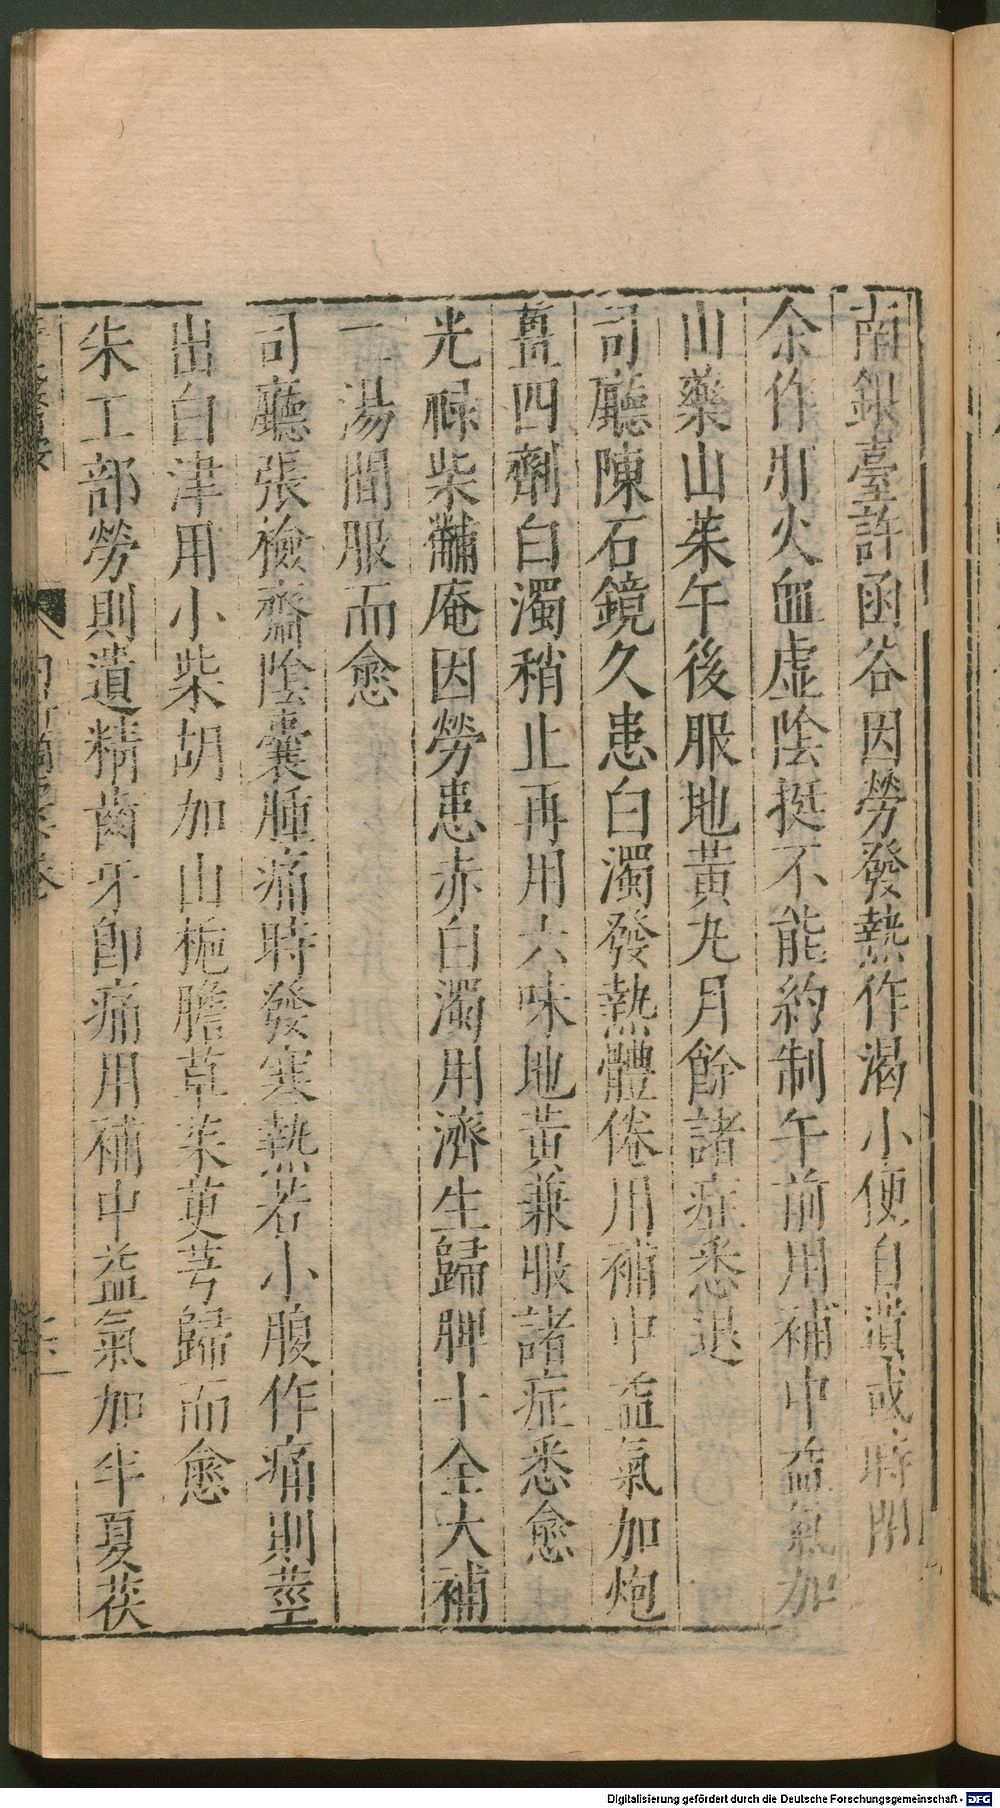 南銀臺許函谷因勞發熱作渴小便自遺或時閉
余作肝火血虛陰挺不能約制午前用補中益氣加
山藥山茱午後服地黃丸月餘諸症悉退
司廳陳石鏡久患白濁發熱體倦用補中益氣加炮
薑四劑白濁稍止再用六味地黃兼服諸症悉愈
光祿柴黼庵因勞患赤白濁用濟生歸脾十全大補
二湯間服而愈
司廳張檢齋陰囊腫痛時發寒熱若小腹作痛則莖
出白津用小柴胡加山梔膽草茱萸芎歸而愈
朱工部勞則遺精齒牙卽痛用補中益氣加半夏茯
Digitalisierung gefördert durch die Deutsche Forschungsgemeinschaft - DFG